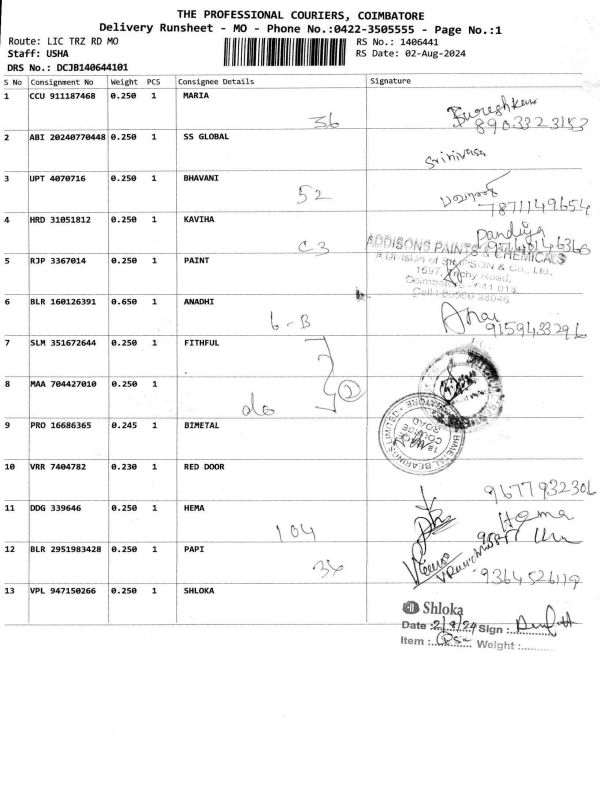 THE PROFESSIONAL COURIERS, COIMBATORE
Delivery Runsheet - MO - Phone No.:0422-3505555 - Page No.:1
Route: LIC TRZ RD MO RS No.: 1406441
Staff: USHA RS Date: 02-Aug-2024
DRS No.: DCJB140644101
S No Consignment No Weight PCS Consignee Details Signature
1 CCU 911187468 0.250 1 MARIA
36 8903323153
2 ABI 20240770448 0.250 1 SS GLOBAL
Srinivasa
3 UPT 4070716 0.250 1 BHAVANI
52 7871149654
4 HRD 31051812 0.250 1 KAVIHA Pandiya
C3 ADDISONS PAINTS & CHEMICALS
5 RJP 3367014 0.250 1 PAINT
6 BLR 160126391 0.650 1 ANADHI
6-B 9159433296
7 SLM 351672644 0.250 1 FITHFUL
8 MAA 704427010 0.250 1
do 2
9 PRO 16686365 0.245 1 BIMETAL
BIMETAL BEARINGS LIMITED
10 VRR 7404782 0.230 1 RED DOOR
9677932306
11 DDG 339646 0.250 1 HEMA Hema
104
12 BLR 2951983428 0.250 1 PAPI
36 9364526119
13 VPL 947150266 0.250 1 SHLOKA
Shloka
Date :2/8/24 Sign :
Item : Weight :